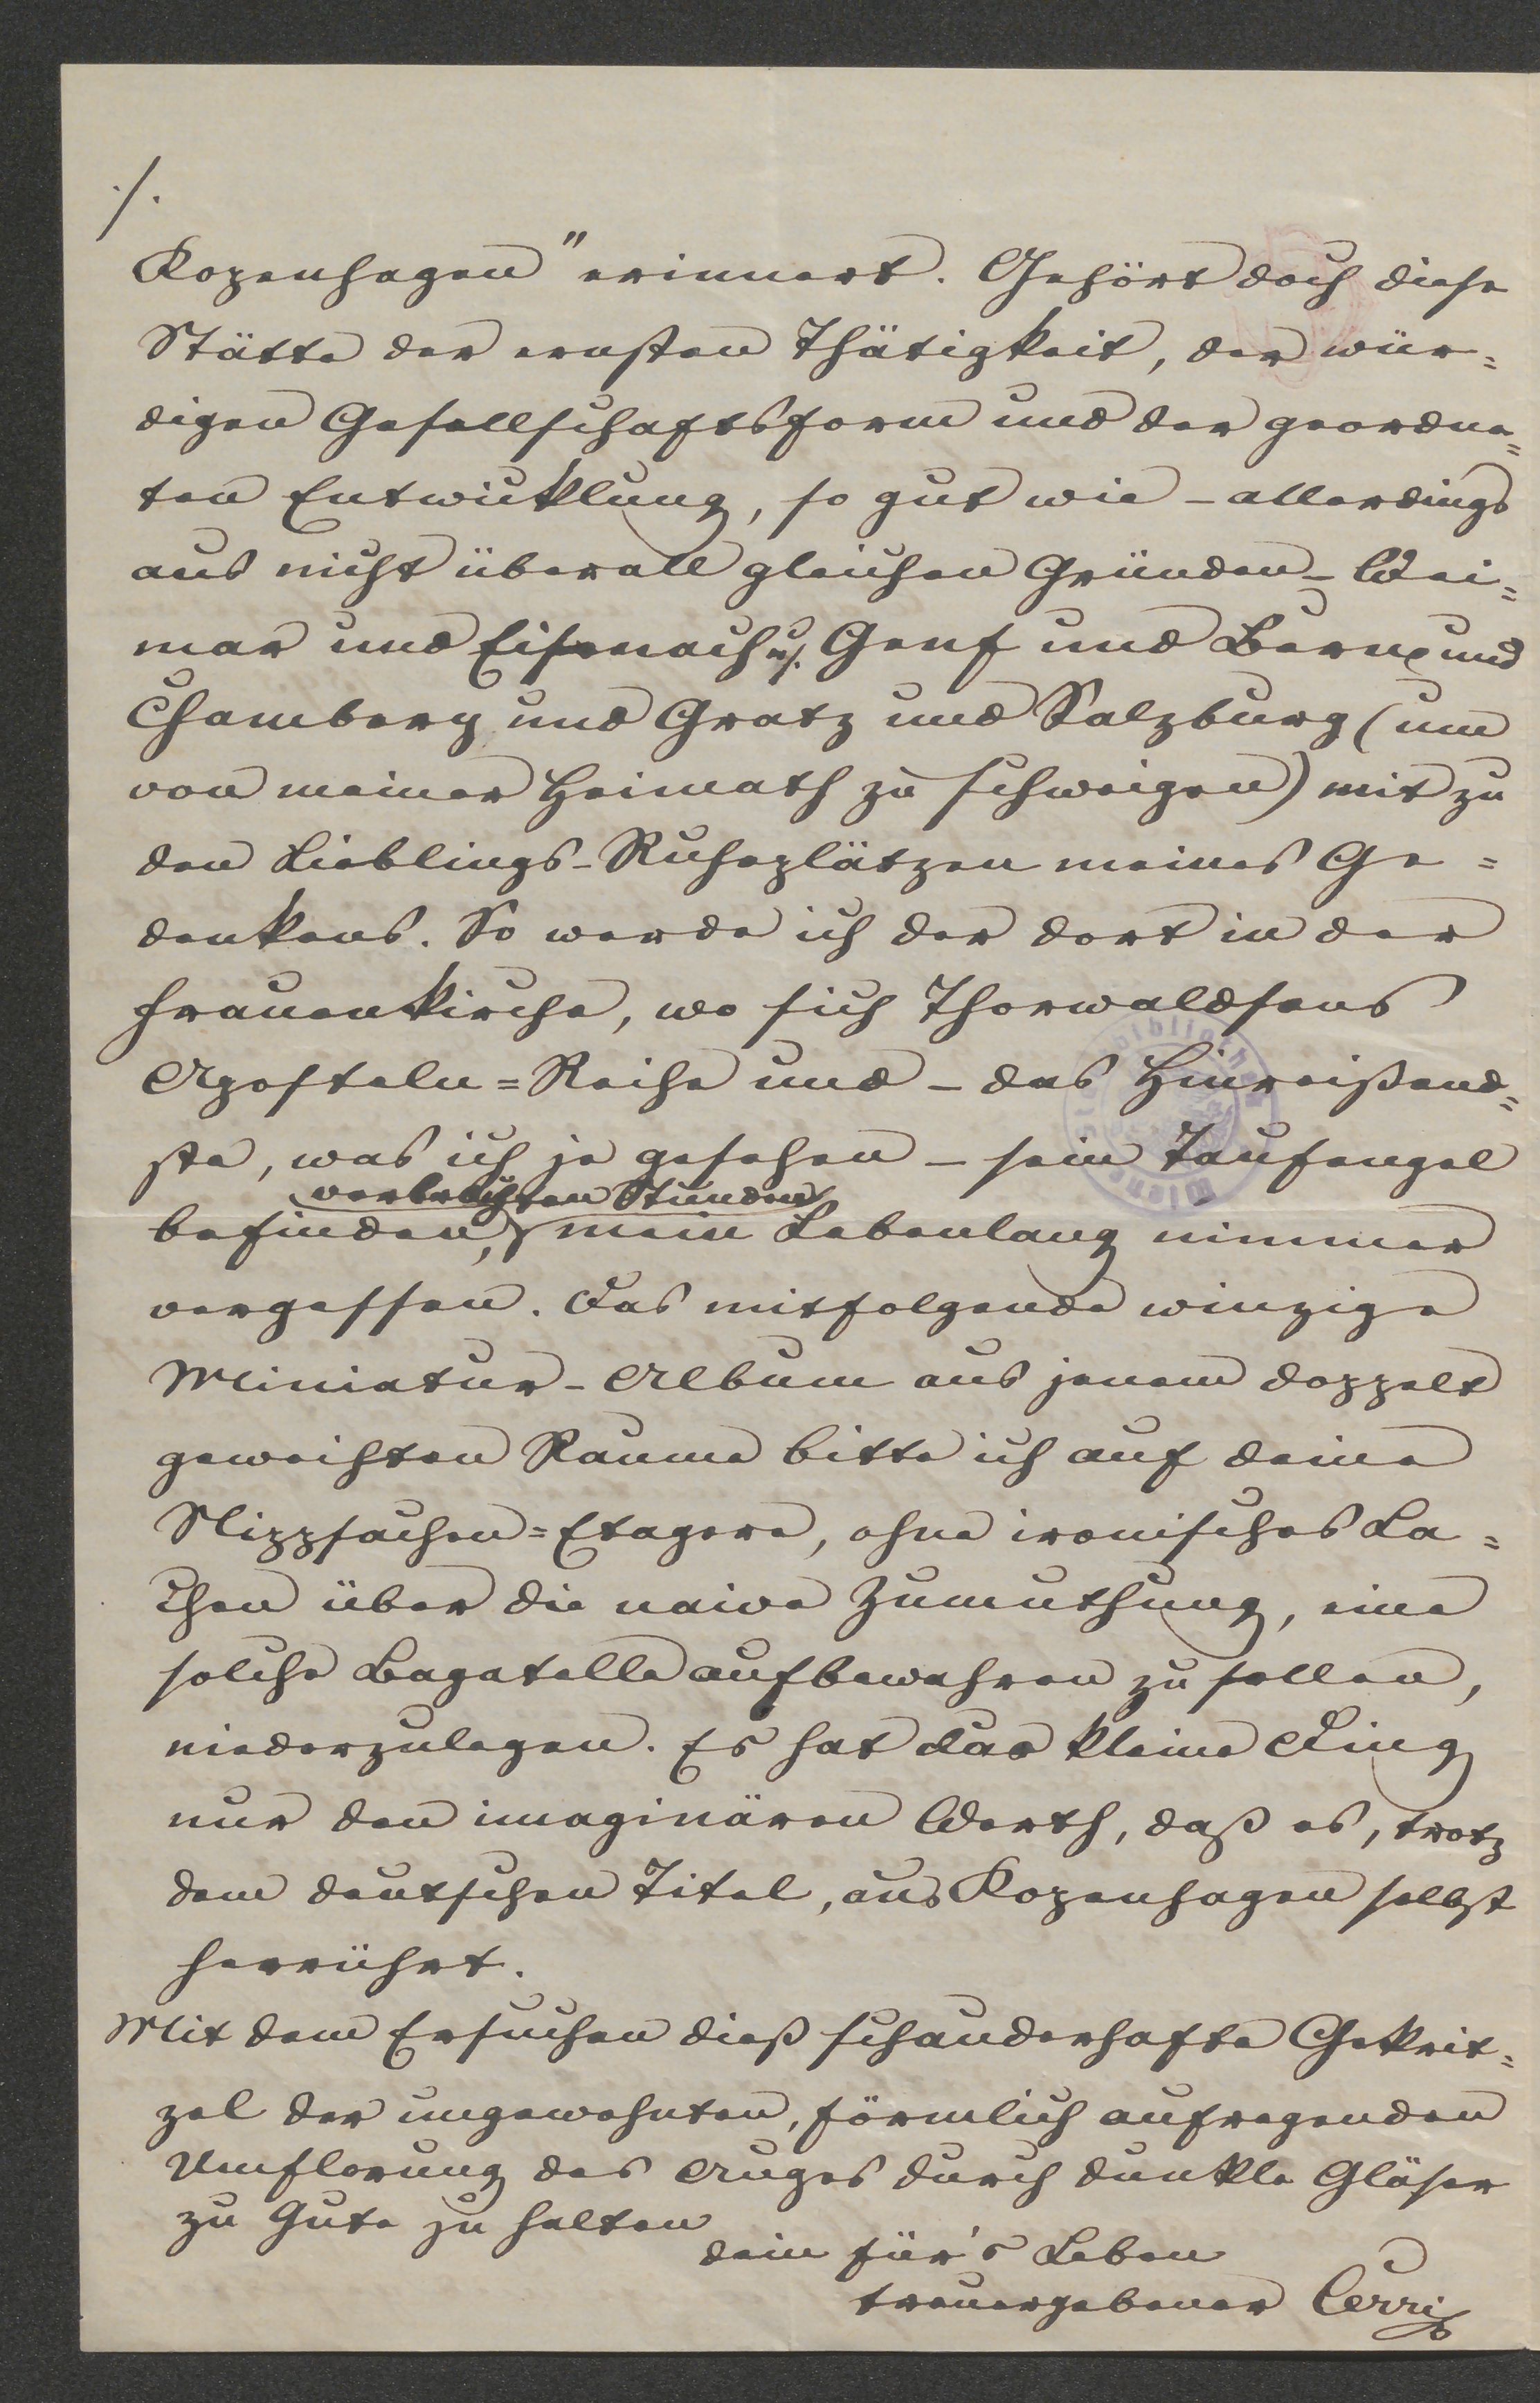 ./.
Kopenhagen" erinnert. Gehört doch diese
Stätte der ernsten Thätigkeit, der wür=
digen Gesellschaftsform und der geordne=
ten Entwicklung, so gut wie - allerdings
aus nicht überall gleichen Gründen - Wei=
mar und Eisenach u. Genf und Bern und
Chambery und Gratz und Salzburg (um
von meiner Heimath zu schweigen) mit zu
den Lieblings-Ruheplätzen meines Ge=
denkens. So werde ich der dort in der
Frauenkirche, wo sich Thorwaldsens
Aposteln=Reihe und - das Hinreißend=
ste, was ich je gesehen - sein Taufengel
verbrachten Stunden
befinden, mein Lebenlang nimmer
vergessen. Das mitfolgende winzige
Miniatur-Album aus jenem doppelt
geweihten Raume bitte ich auf deine
Nippsachen=Etagere, ohne ironisches La=
chen über die naive Zumuthung, eine
solche Bagatelle aufbewahren zu sollen,
niederzulegen. Es hat das kleine Ding
nur den imaginären Werth, daß es, trotz
dem deutschen Titel, aus Kopenhagen selbst
herrührt.
Mit dem Ersuchen dieß schauderhafte Gekrit=
zel der ungewohnten, förmlich aufregenden
Umflorung des Auges durch dunkle Gläser
zu Gute zu halten
dein für's Leben
treuergebener Cerri